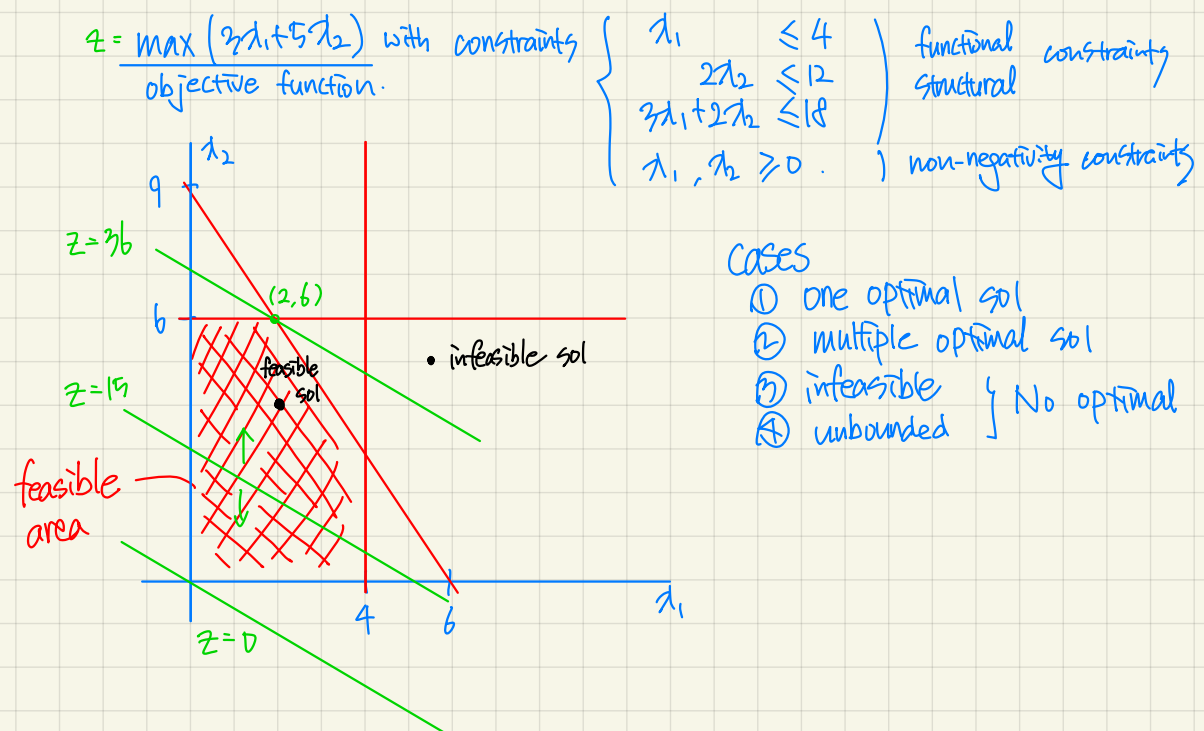 z = max (3x₁+5x₂) with constraints
objective function.
x₁ ≤ 4
2x₂ ≤ 12
3x₁+2x₂ ≤ 18
x₁, x₂ ≥ 0.
functional
structural
constraints
non-negativity constraints
x₂
9
z=36
(2,6)
6
feasible
sol
• infeasible sol
z=15
feasible
area
4
6
x₁
z=0
cases
① one optimal sol
② multiple optimal sol
③ infeasible
④ unbounded
No optimal